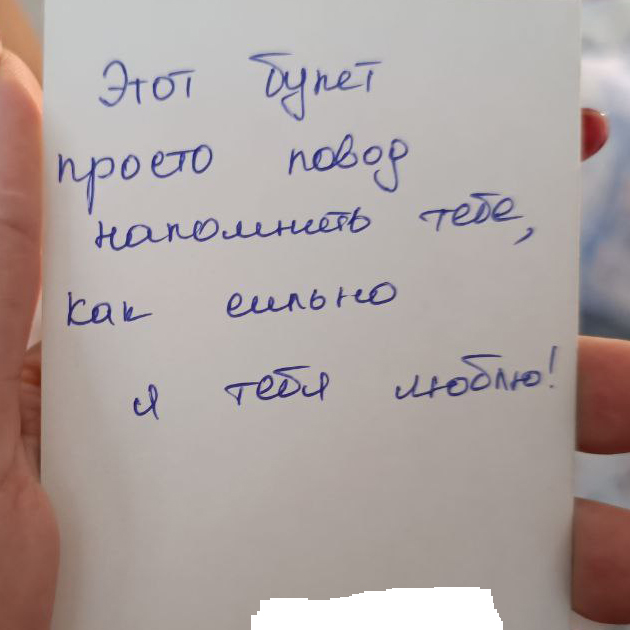 Этот букет
просто повод
напомнить тебе,
как сильно
я тебя люблю!